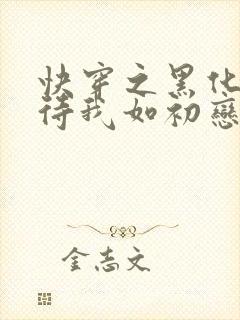 快穿之黑化
待我如初戀
金志文